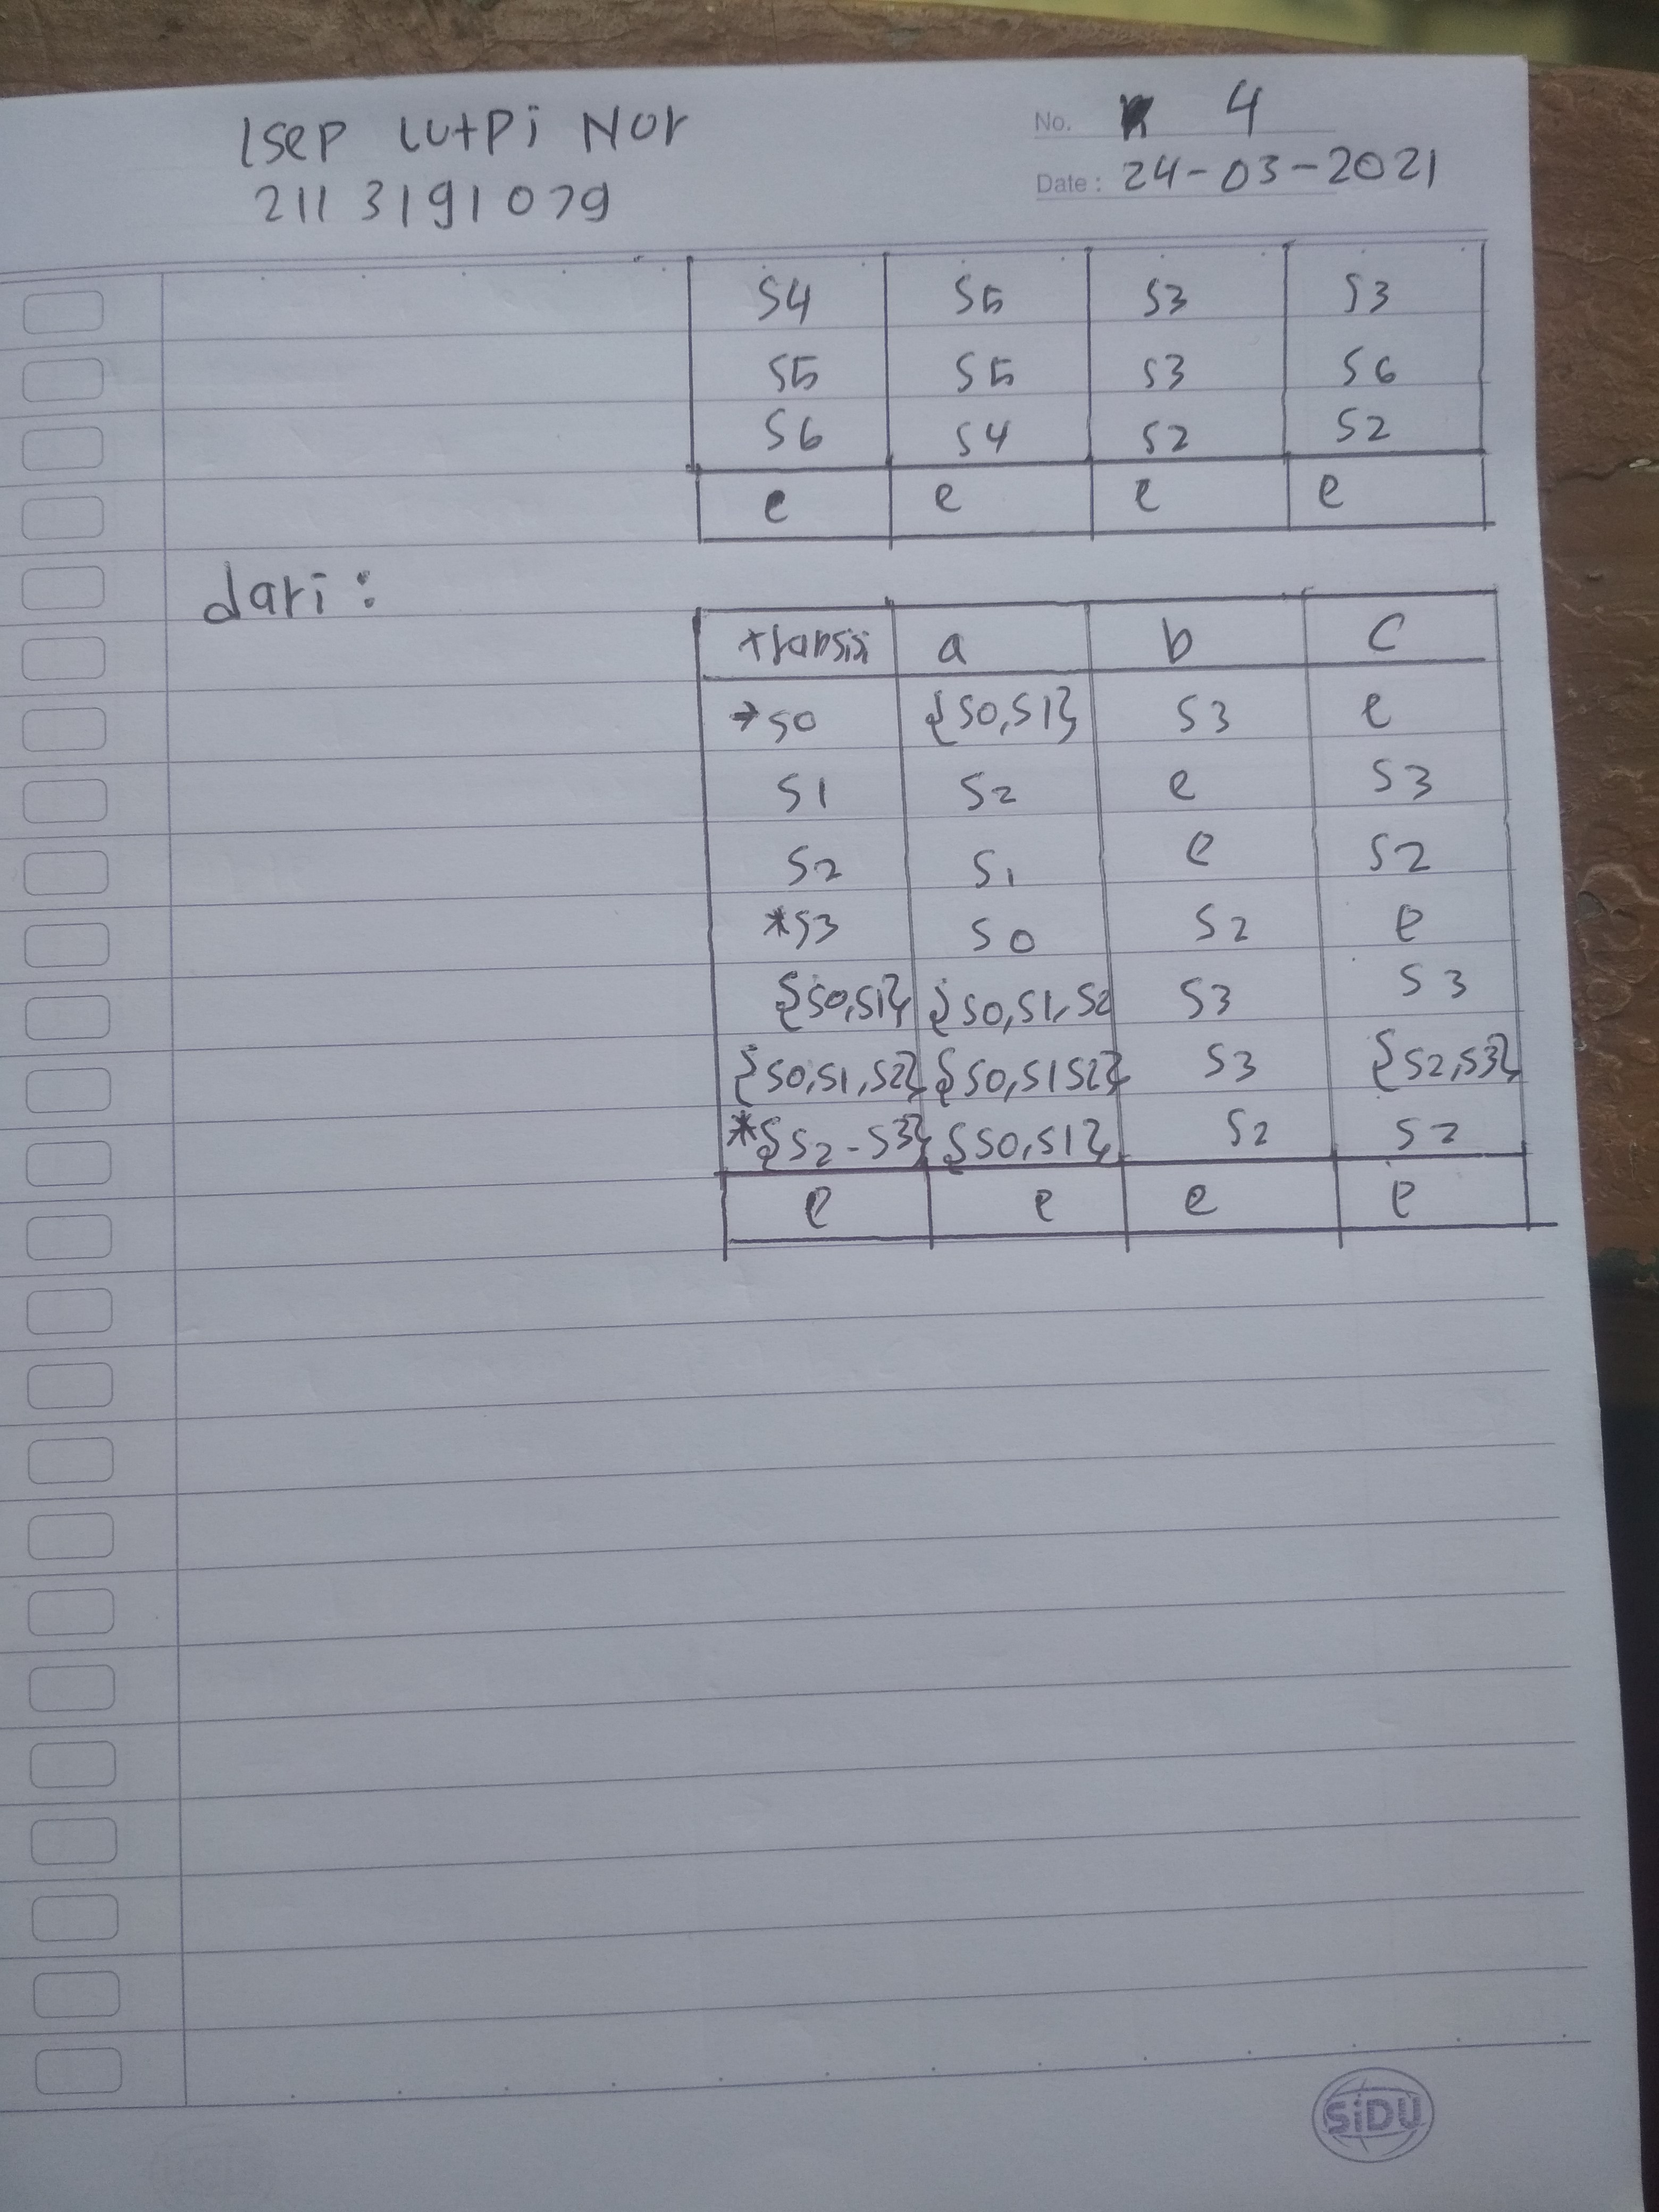 Isep lutpi Nor
No. 4
2113191079
Date: 24-03-2021
S4 S5 S3 S3
S5 S5 S3 S6
S6 S4 S2 S2
e e e e
dari:
transisi a b c
→S0 {S0,S1} S3 e
S1 S2 e S3
S2 S1 e S2
*S3 S0 S2 e
{S0,S1} {S0,S1,S2 S3 S3
{S0,S1,S2} {S0,S1S2} S3 {S2,S3}
*{S2-S3} {S0,S1} S2 S2
e e e e
SiDU